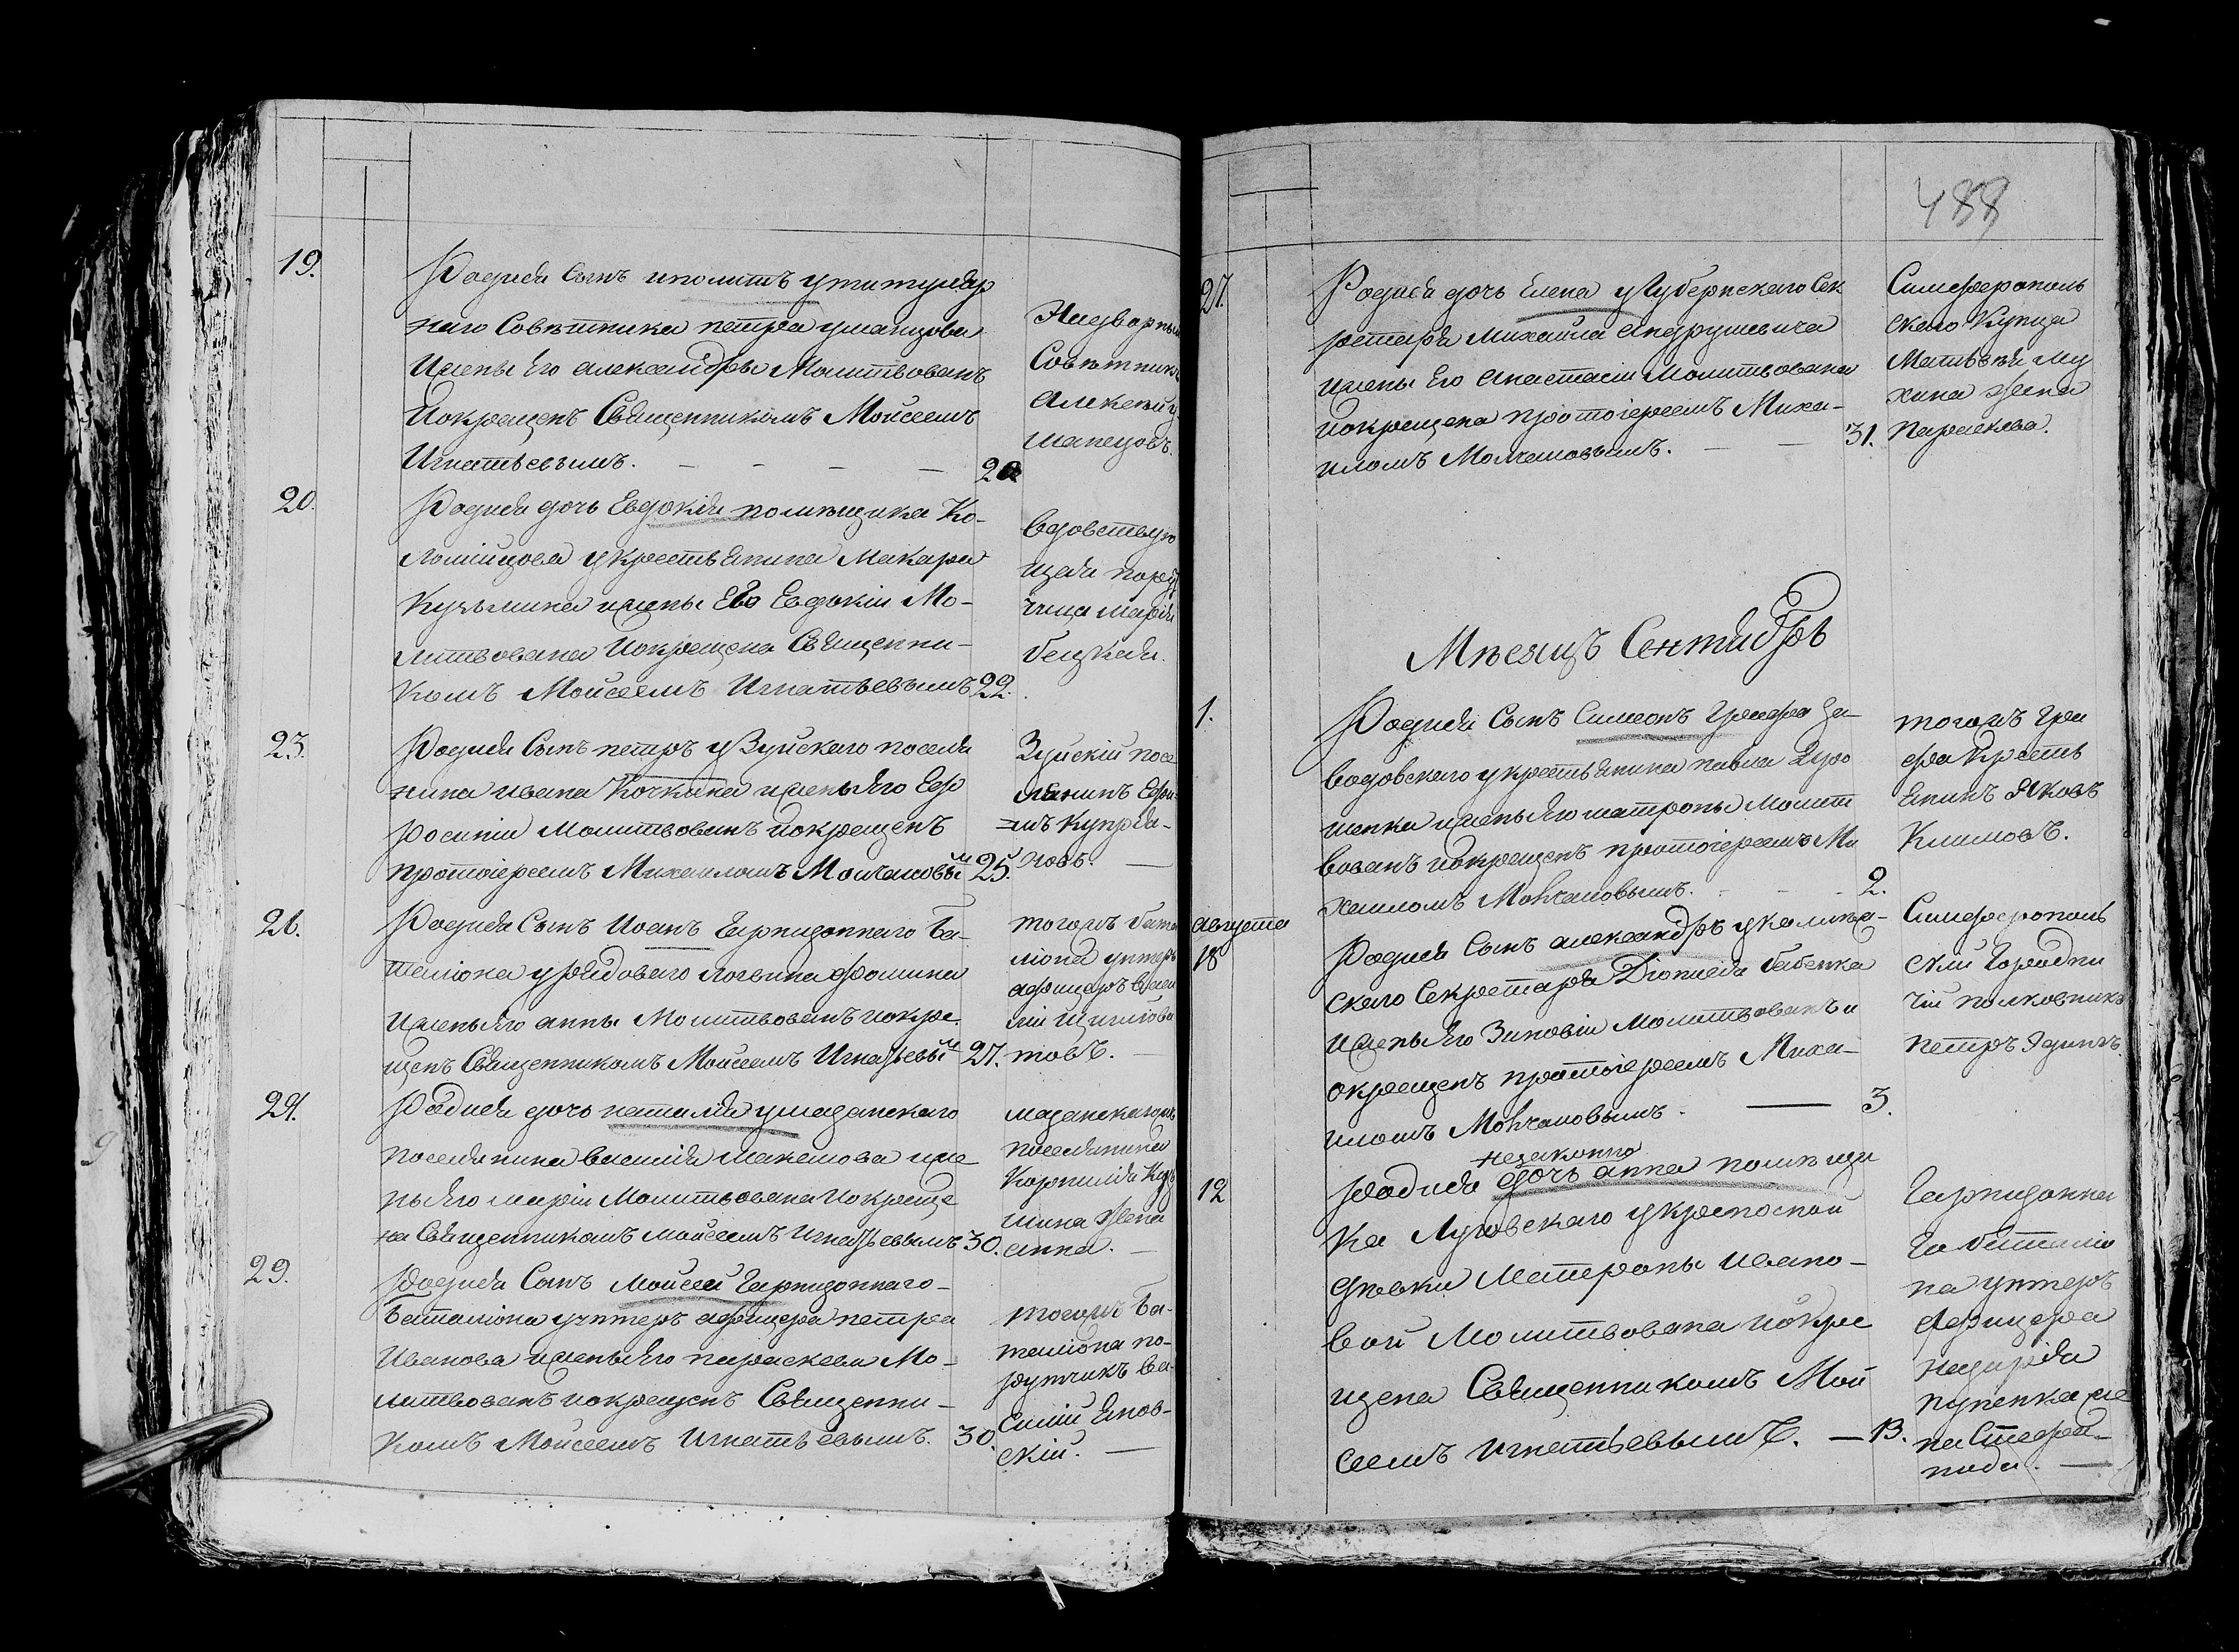 19.
Родися сынъ иполитъ утитуляр
наго Совѣтника петра уманцова
ижены Его александры Молитвованъ
Иокрещенъ Священникомъ Мойсеемъ
Игнатьевымъ. 20
Надворный
Совѣтникъ
Алексѣй у
манцовъ.
20.
Родися дочь Евдокія помѣщика Ко-
ломійцова укрестьянина Макара
Кузьмина ижены Его Евдокіи Мо-
литвована Иокрещена Священни-
комъ Мойсеемъ Игнатьевымъ 22.
вдовствую
щая
чица марія
бецкая.
23.
Родися Сынъ петръ уЗуйскаго поселя
нина ивана Кочкина ижены Его Еф
росиніи Молитвованъ иокрещенъ
протоіереемъ Михаиломъ Молчановым 25.
Зуйскій посе
лянинъ Ефи-
=мъ купрія-
новъ. —
26.
Родися Сынъ Иоанъ Гарнизоннаго Ба-
таліона урядоваго логвина фомина
ижены Его анны Молитвованъ иокре
щенъ Священникомъ Мойсеемъ Игнатьевым 27.
тогожъ бата
ліона унтеръ
афицеръ васи
лій
товъ. —
29.
Родися дочь наталія умазанскаго
поселянина василія макашова иже
ны Его маріи Молитвована Иокреще
на Священникомъ мойсеемъ игнатьевымъ 30.
мазанскагожъ
поселянина
Корнилія
шина жена
анна. —
29.
Родися Сынъ Мойсей Гарнизоннаго-
баталіона уунтеръ афицера петра
Иванова ижены Его параскевы Мо-
литвованъ иокрещенъ Священни-
комъ Мойсеемъ Игнатьевымъ. 30.
тогожъ ба-
таліона по-
рутчикъ ва-
силій Янов-
скій. —
488
27.
Родися дочь Елена уГубернскаго Сек
ретаря михаила андрушевича
ижены Его анастасіи Молитвована
Иокрещена протоіереемъ Миха-
иломъ Молчановымъ. — — 31.
Симферополь
скаго Купца
Матвѣя му
хина жена
Параскева.
Мѣсяцъ Сентябрь
1.
Родися Сынъ Симеонъ Графа За-
водовскаго укрестьянина павла
шенка ижены Его матроны Молит
вованъ Иокрещенъ протоіереемъ Ми
хаиломъ Молчановымъ. 2.
тогожъ Гра
фа Кресть
янинъ Яковъ
Климовъ.
августа
18
Родися Сынъ александръ
скаго Секретаря Діонисія бабенка
ижены Его Зиновіи Молитвованъ и
окрещенъ протоіереемъ Миха-
иломъ Молчановымъ. — 3.
Симферополь
скій Городни
чій полковникъ
петръ
12
незаконно
родися дочь анна помѣщи
ка Луговскаго укрепостной
дѣвки Матроны ивано-
вой Молитвована иокре
щена Священникомъ Мой
сеемъ игнатьевымъ. — 13.
Гарнизонна
го баталіо
на унтеръ
афицера
назарія
пупенка же
на Стефа-
нида. —